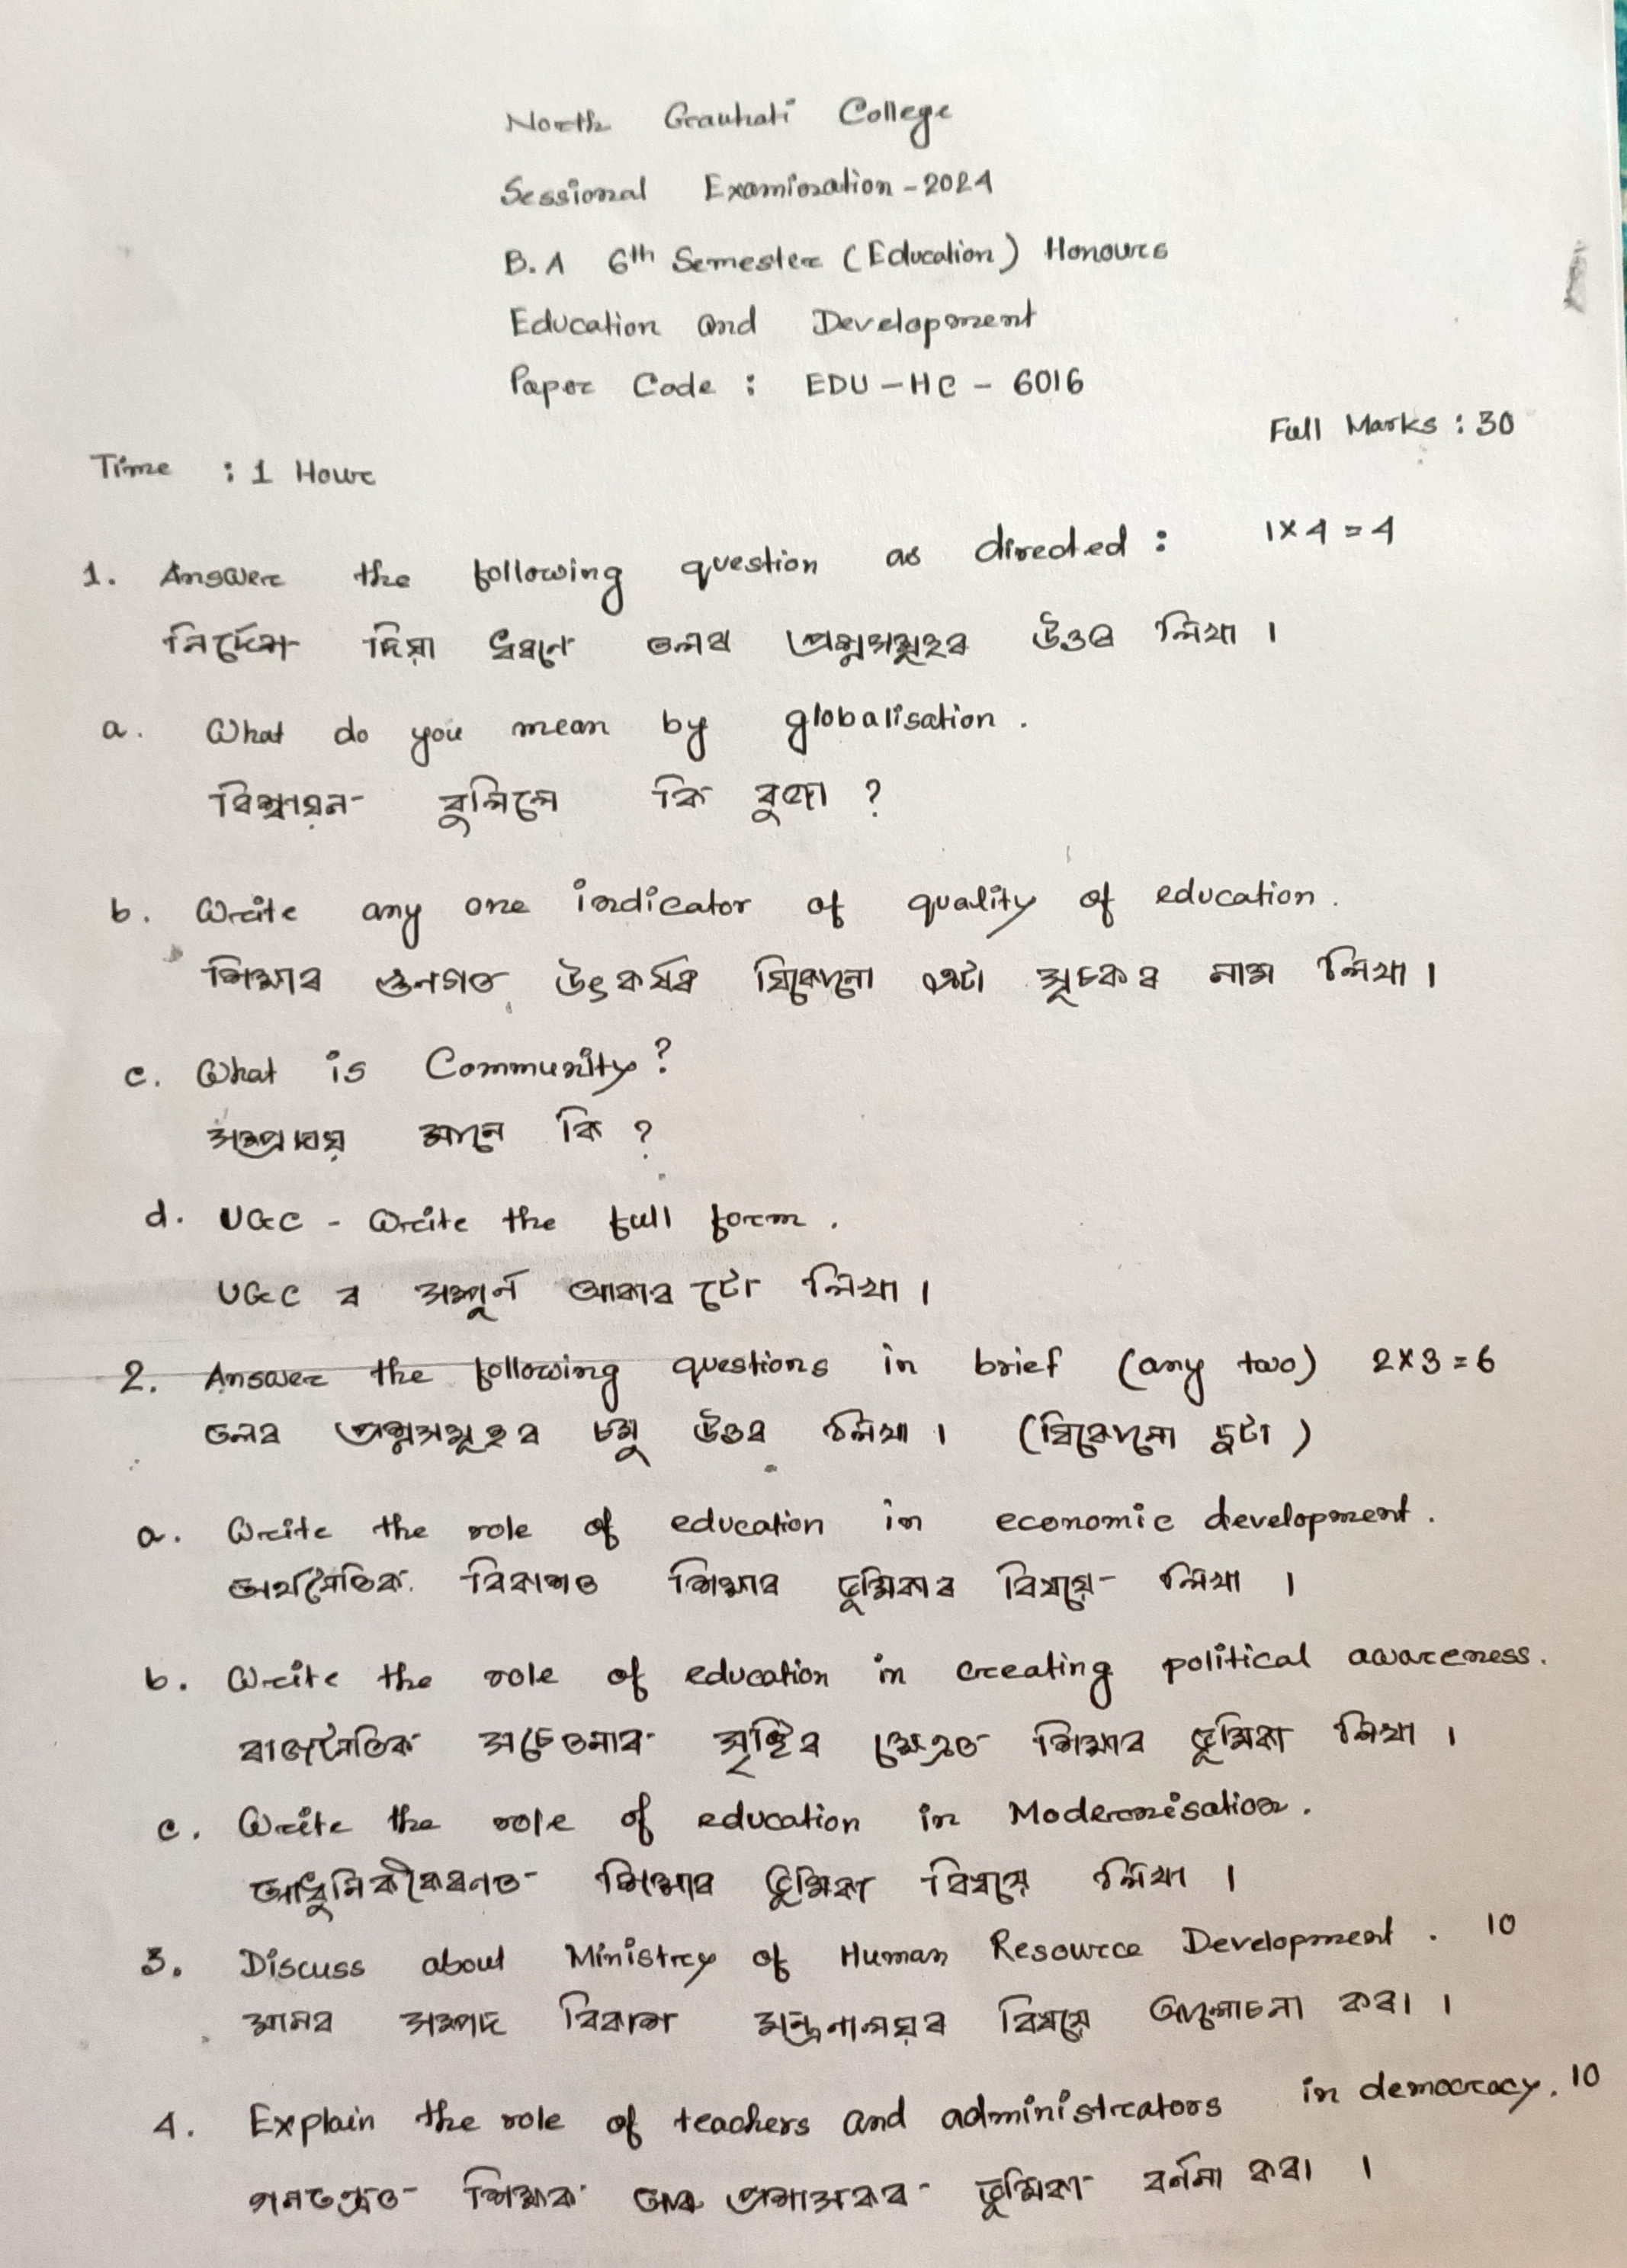 North Gauhati College
Sessional Examination - 2024
B.A 6th Semester (Education) Honours
Education and Development
Paper Code : EDU - HC - 6016
Full Marks : 30
Time : 1 Hour
1. Answer the following question as directed : 1×4=4
নিৰ্দেশ দিয়া ধৰণে তলৰ প্ৰশ্নসমূহৰ উত্তৰ লিখা ।
a. What do you mean by globalisation .
বিশ্বায়ন বুলিলে কি বুজা ?
b. Write any one indicator of quality of education .
শিক্ষাৰ গুনগত উৎকৰ্ষৰ যিকোনো এটা সূচকৰ নাম লিখা ।
c. What is Community ?
সম্প্ৰদায় মানে কি ?
d. UGC - Write the full form .
UGC ৰ সম্পূৰ্ন আকাৰ টো লিখা ।
2. Answer the following questions in brief (any two) 2×3=6
তলৰ প্ৰশ্নসমূহৰ চমু উত্তৰ লিখা । (যিকোনো দুটা )
a. Write the role of education in economic development .
অৰ্থনৈতিক বিকাশত শিক্ষাৰ ভূমিকাৰ বিষয়ে লিখা ।
b. Write the role of education in creating political awareness .
ৰাজনৈতিক সচেতনাৰ সৃষ্টিৰ ক্ষেত্ৰত শিক্ষাৰ ভূমিকা লিখা ।
c. Write the role of education in Modernisation .
আধুনিকীকৰণত শিক্ষাৰ ভূমিকা বিষয়ে লিখা ।
3. Discuss about Ministry of Human Resource Development . 10
মানৱ সম্পদ বিকাশ মন্ত্ৰনালয়ৰ বিষয়ে আলোচনা কৰা ।
4. Explain the role of teachers and administrators in democracy. 10
গনতন্ত্ৰত শিক্ষক আৰু প্ৰশাসকৰ ভূমিকা বৰ্ননা কৰা ।